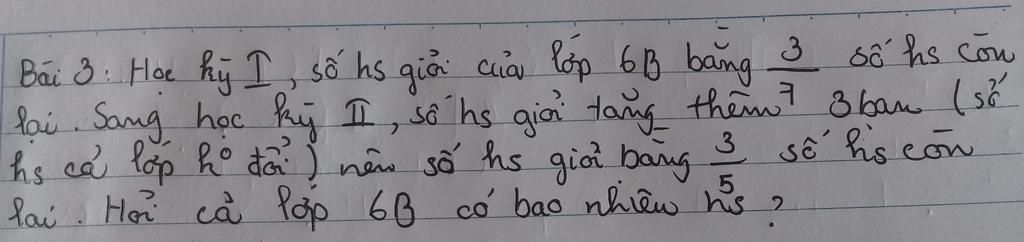 Bài 3: Học kỳ I, số hs giỏi của lớp 6B bằng 3/7 số hs còn
lại. Sang học kỳ II, số hs giỏi tăng thêm 3 bạn (số
hs cả lớp k° đổi) nên số hs giỏi bằng 3/5 số hs còn
lại. Hỏi cả lớp 6B có bao nhiêu hs?